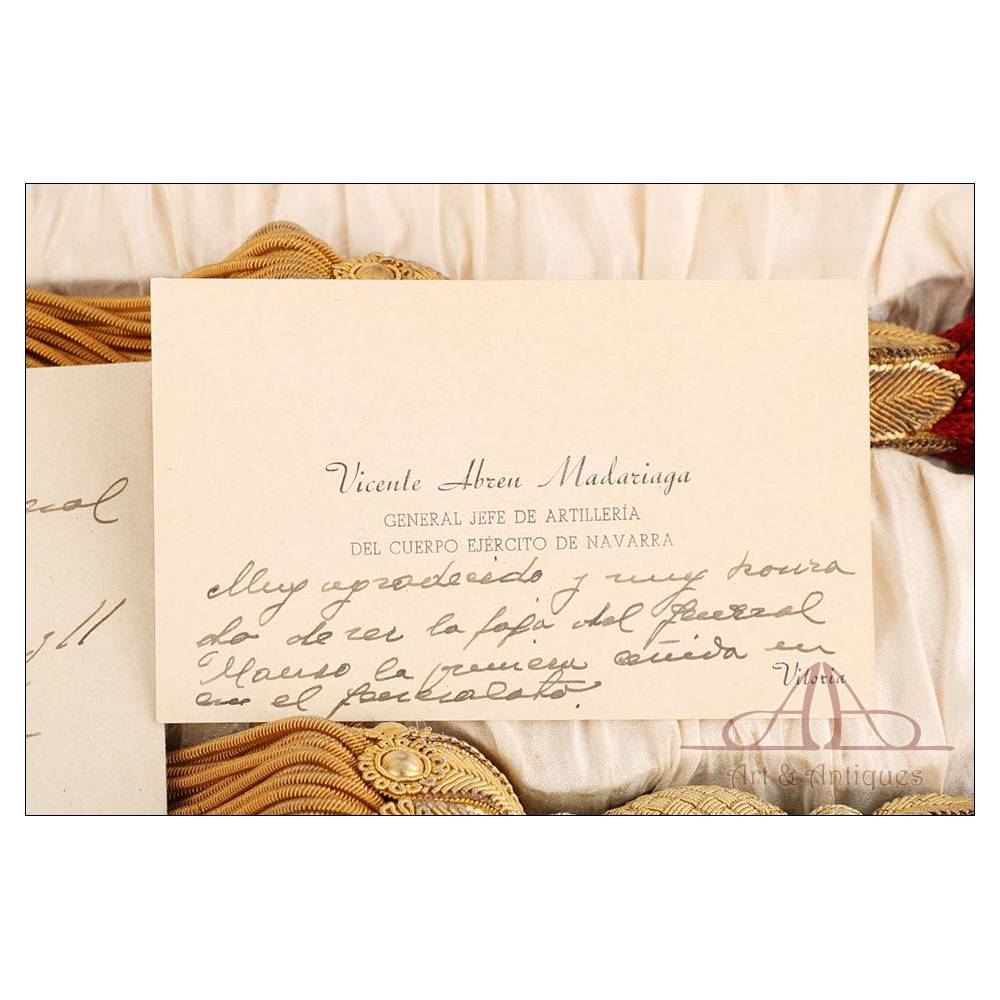 Vicente Abreu Madariaga
GENERAL JEFE DE ARTILLERÍA
DEL CUERPO EJÉRCITO DE NAVARRA
Muy agradecido y muy honra
do de ser la faja del general
Manso la primera ceñida en
en el generalato.
Vitoria
Art & Antiques